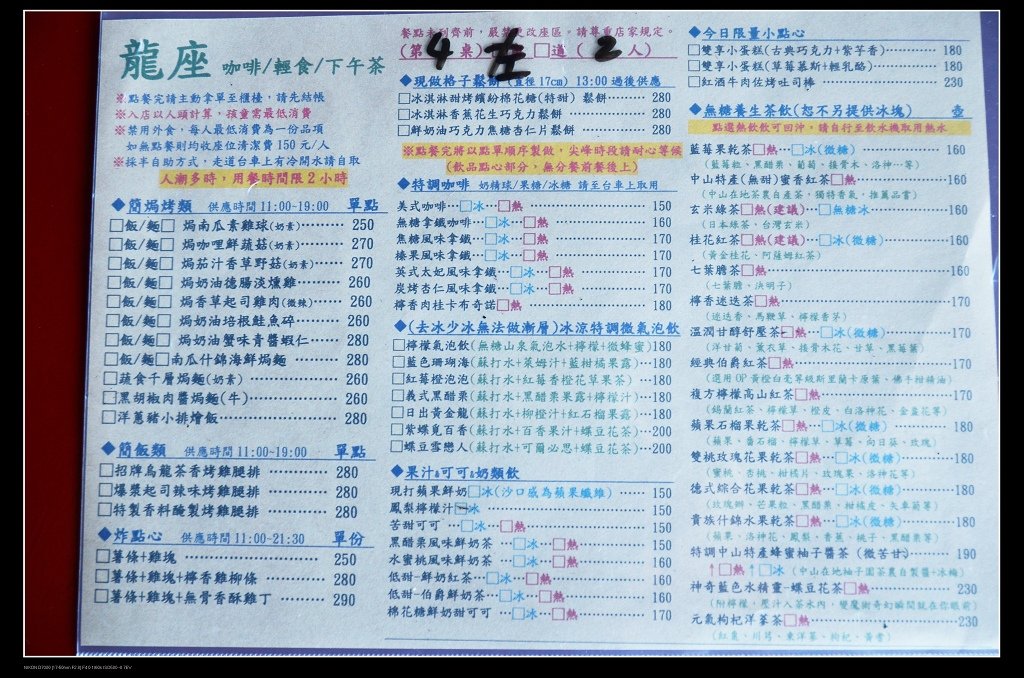 龍座 咖啡/輕食/下午茶
※點餐完請主動拿單至櫃檯，請先結帳
※入店以人頭計算，孩童需最低消費
※禁用外食，每人最低消費為一份品項
如無點餐則均收座位清潔費150元/人
※採半自助方式，走道台車上有冷開水請自取
人潮多時，用餐時間限2小時
◆簡焗烤類 供應時間11:00~19:00 單點
□飯/麵□ 焗南瓜素雞球(奶素)········ 250
□飯/麵□ 焗咖哩鮮蔬菇(奶素)······ 270
□飯/麵□ 焗茄汁香草野菇(奶素)······ 270
□飯/麵□ 焗奶油德腸淡燻雞········ 260
□飯/麵□ 焗香草起司雞肉(微辣)······ 260
□飯/麵□ 焗奶油培根鮭魚碎········ 260
□飯/麵□ 焗奶油蟹味青醬蝦仁······ 280
□飯/麵□南瓜什錦海鮮焗麵 ········ 280
□蔬食千層焗麵(奶素) ·············· 260
□黑胡椒肉醬焗麵(牛) ·············· 260
□洋蔥豬小排燴飯·················· 280
◆簡飯類 供應時間11:00~19:00 單點
□招牌烏龍茶香烤雞腿排 ·········· 280
□爆漿起司辣味烤雞腿排 ·········· 280
□特製香料醃製烤雞腿排 ·········· 280
◆炸點心 供應時間11:00~21:30 單份
□薯條+雞塊 ······················ 250
□薯條+雞塊+檸香雞柳條 ·········· 280
□薯條+雞塊+無骨香酥雞丁 ········ 290
餐點未到齊前，嚴禁更改座區。請尊重店家規定。
(第 4 桌) 左 □道 ( 2 人)
◆現做格子鬆餅(直徑17cm) 13:00過後供應
□冰淇淋甜烤繽紛棉花糖(特甜) 鬆餅········ 280
□冰淇淋香蕉花生巧克力鬆餅············ 280
□鮮奶油巧克力焦糖杏仁片鬆餅·········· 280
※點餐完將以點單順序製做，尖峰時段請耐心等候
(飲品點心部分，無分餐前餐後上)
◆特調咖啡 奶精球/果糖/冰糖 請至台車上取用
美式咖啡···□冰···□熱 150
無糖拿鐵咖啡···□冰···□熱 160
焦糖風味拿鐵···□冰···□熱 170
榛果風味拿鐵···□冰···□熱 170
英式太妃風味拿鐵···□冰···□熱 170
炭烤杏仁風味拿鐵···□冰···□熱 170
檸香肉桂卡布奇諾□熱 180
◆(去冰少冰無法做漸層)冰涼特調微氣泡飲
□檸檬氣泡飲(無糖山泉氣泡水+檸檬+微蜂蜜)180
□藍色珊瑚海(蘇打水+萊姆汁+藍柑橘果露)···180
□紅莓橙泡泡(蘇打水+紅莓香橙花草果茶) ···180
□義式黑醋栗(蘇打水+黑醋栗果露+檸檬汁)···180
□日出黃金龍(蘇打水+柳橙汁+紅石榴果露)···180
□紫蝶覓百香(蘇打水+百香果汁+蝶豆花茶)···200
□蝶豆雪戀人(蘇打水+可爾必思+蝶豆花茶)···200
◆果汁&可可&奶類飲
現打蘋果鮮奶□冰(沙口感為蘋果纖維) ······ 150
鳳梨檸檬汁□冰 150
苦甜可可 ···□冰···□熱 150
黑醋栗風味鮮奶茶 ···□冰···□熱 150
水蜜桃風味鮮奶茶 ···□冰···□熱 160
低甜-鮮奶紅茶···□冰···□熱 160
低甜-伯爵鮮奶茶···□冰···□熱 160
棉花糖鮮奶甜可可 ···□冰···□熱 170
◆今日限量小點心
□雙享小蛋糕(古典巧克力+紫芋香)············ 180
□雙享小蛋糕(草莓慕斯+輕乳酪)·············· 180
□紅酒牛肉佐烤吐司棒 ······················ 230
◆無糖養生茶飲(恕不另提供冰塊) 壺
點選熱飲飲可回沖，請自行至飲水機取用熱水
藍莓果乾茶□熱···□冰(微糖)·············· 160
(藍莓粒、黑醋栗、葡萄、接骨木、洛神…等)
中山特產(無甜)蜜香紅茶□熱·············· 160
(中山在地茶裏自產茶，獨特香氣，推薦品嘗)
玄米綠茶□熱(建議)···□無糖冰 160
(日本綠茶、台灣玄米)
桂花紅茶□熱(建議)···□冰(微糖) 160
(黃金桂花、阿薩姆紅茶)
七葉膽茶□熱 160
(七葉膽、決明子)
檸香迷迭茶□熱 170
(迷迭香、馬鞭草、檸檬香茅)
溫潤甘醇舒壓茶□熱···□冰(微糖) 170
(洋甘菊、薰衣草、接骨木花、甘草、黑莓葉)
經典伯爵紅茶□熱 170
(選用OP黃橙白毫等級斯里蘭卡原葉、佛手柑精油)
複方檸檬高山紅茶□熱 170
(錫蘭紅茶、檸檬草、橙皮、白洛神花、金盞花等)
蘋果石榴果乾茶□熱···□冰(微糖) 180
(蘋果、番石榴、檸檬草、草莓、向日葵、玫瑰)
雙桃玫瑰花果乾茶□熱···□冰(微糖) 180
(蜜桃、杏桃、柑橘片、玫瑰果、洛神花等)
德式綜合花果乾茶□熱···□冰(微糖) 180
(玫瑰瓣、芒果粒、黑醋栗、柑橘皮、矢車菊等)
貴族什錦水果乾茶□熱···□冰(微糖) 180
(蘋果、洛神花、鳳梨、香蕉、桃子、黑醋栗等)
特調中山特產蜂蜜柚子醬茶(微苦甘) 190
↑□熱↑□冰 (中山在地柚子園茶裏自製醬+冰梅)
神奇藍色水精靈-蝶豆花茶□熱 230
(附檸檬，壓汁入茶水內，變魔術奇幻瞬間就在你眼前)
元氣枸杞洋蔘茶□熱 230
(紅棗、川芎、東洋蔘、枸杞、黃耆)